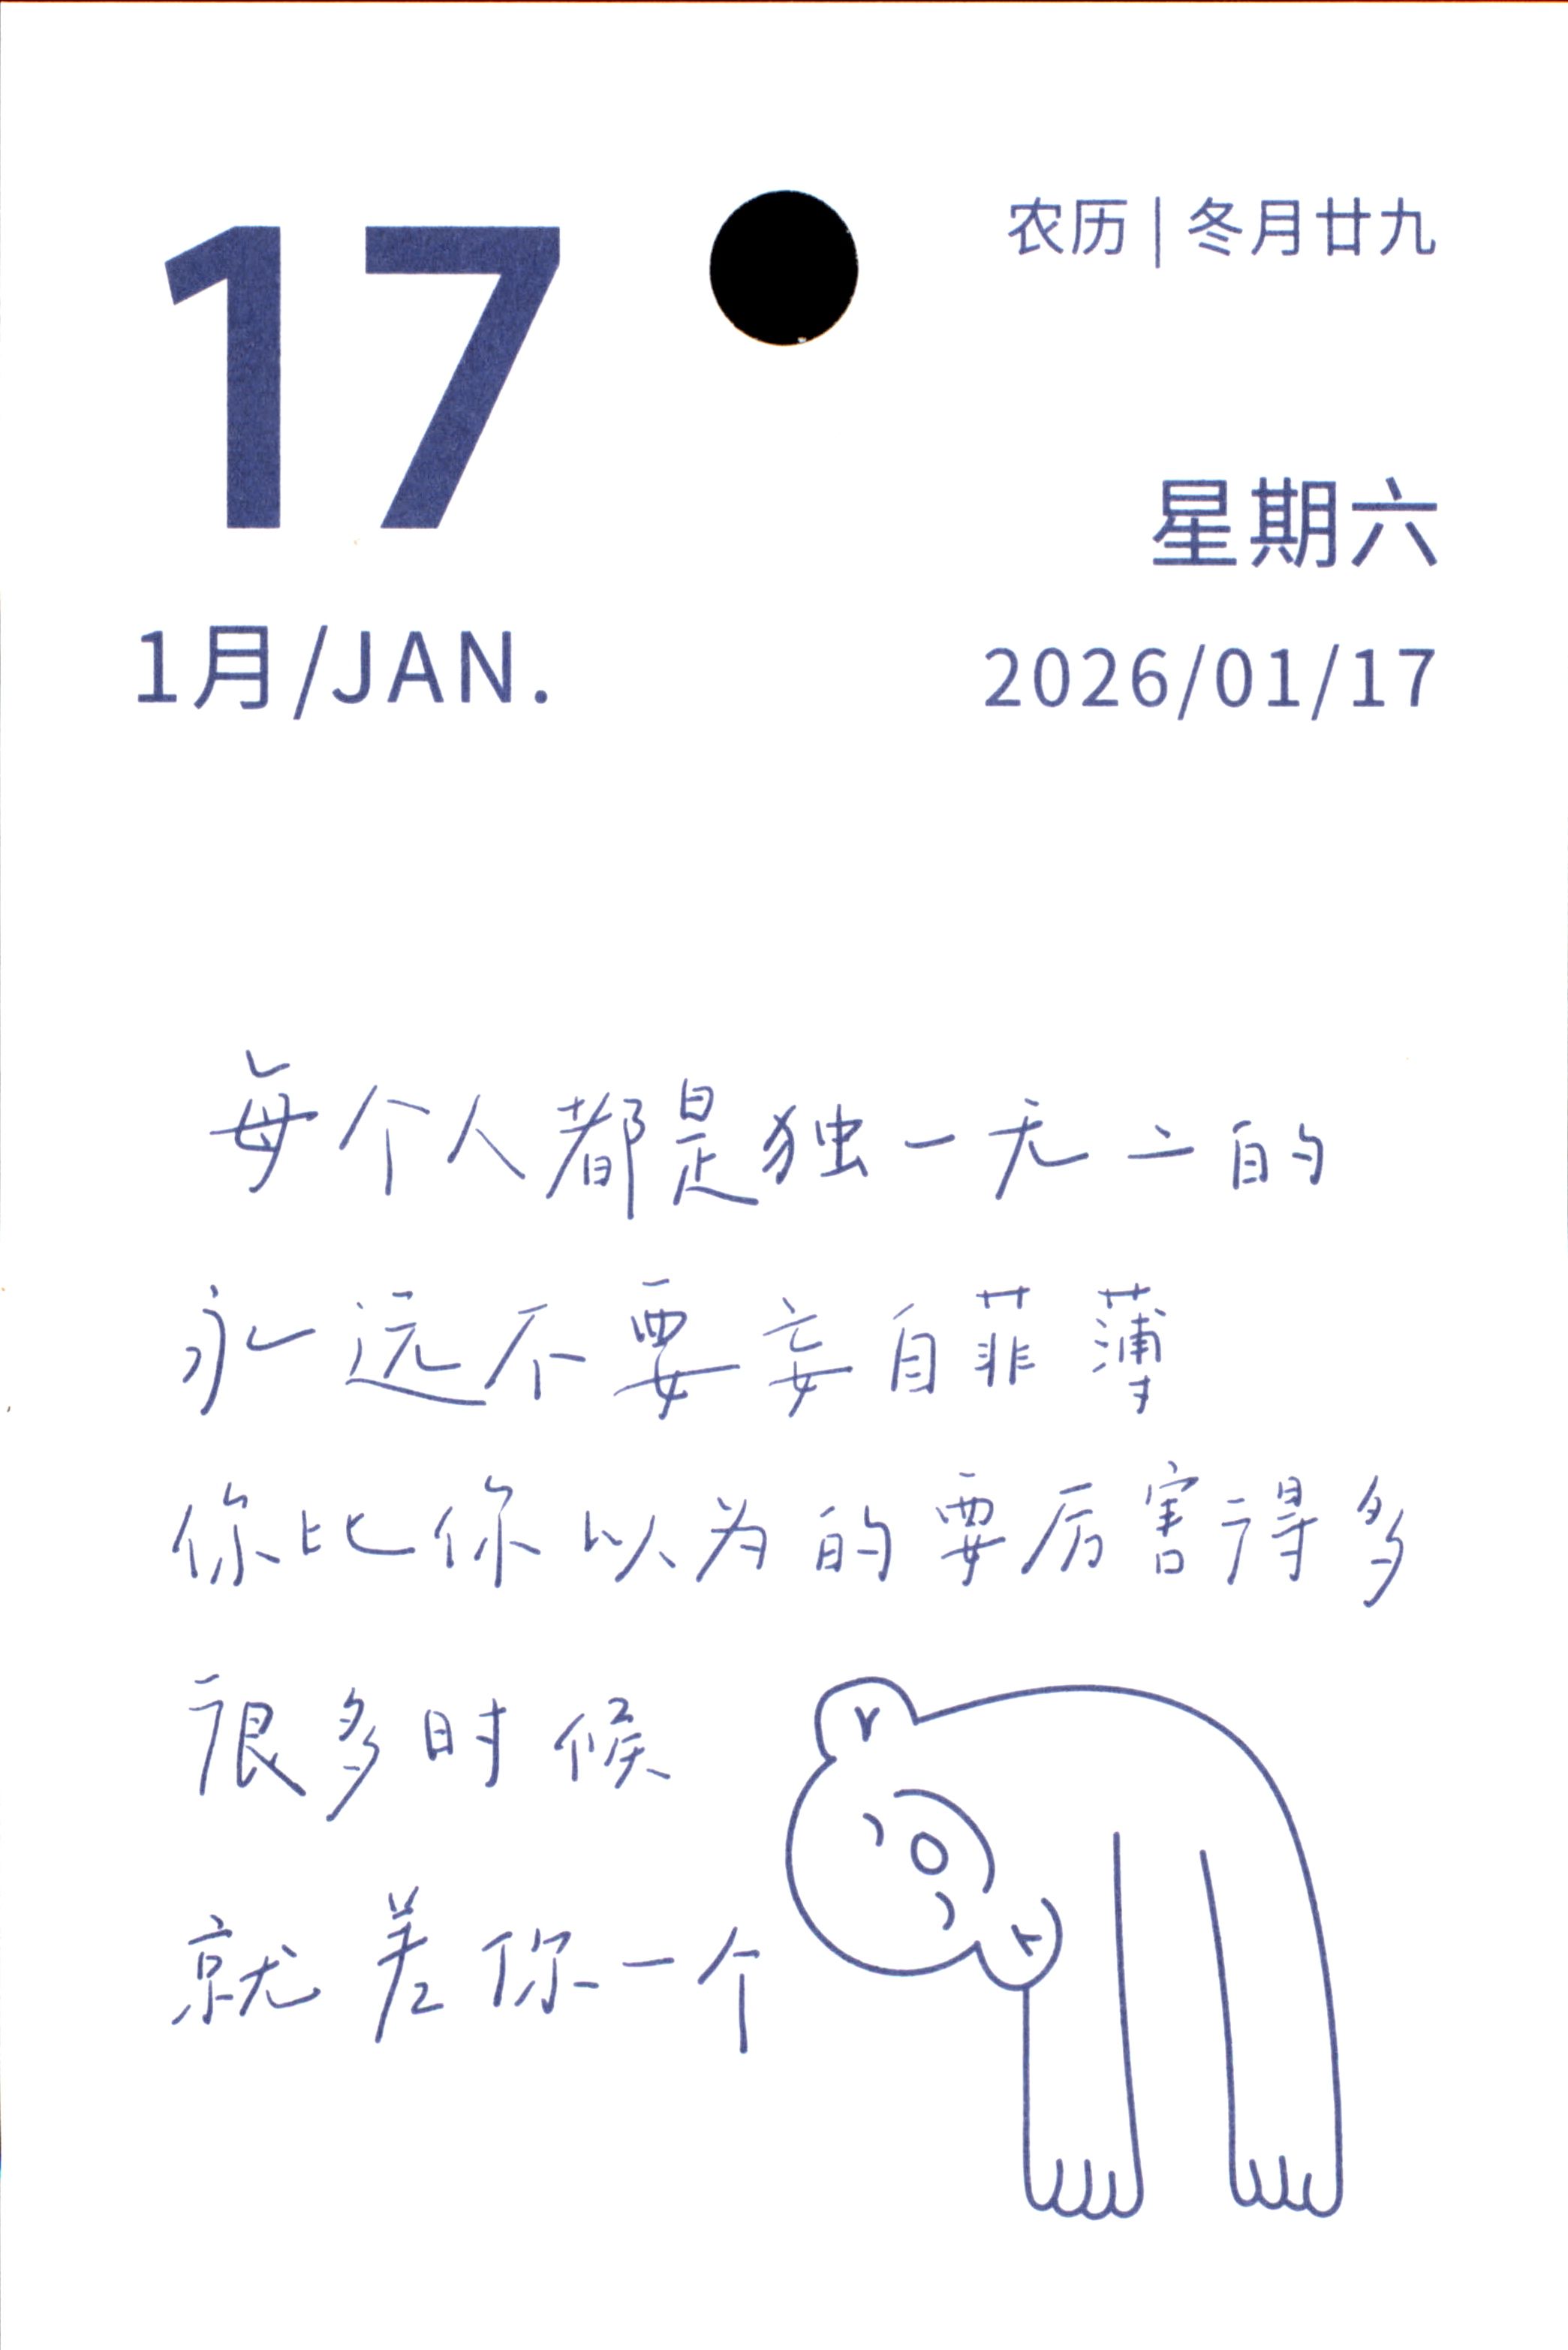 17
农历|冬月廿九
星期六
1月/JAN.
2026/01/17
每个人都是独一无二的
永远不要妄自菲薄
你比你以为的要厉害得多
很多时候
就差你一个